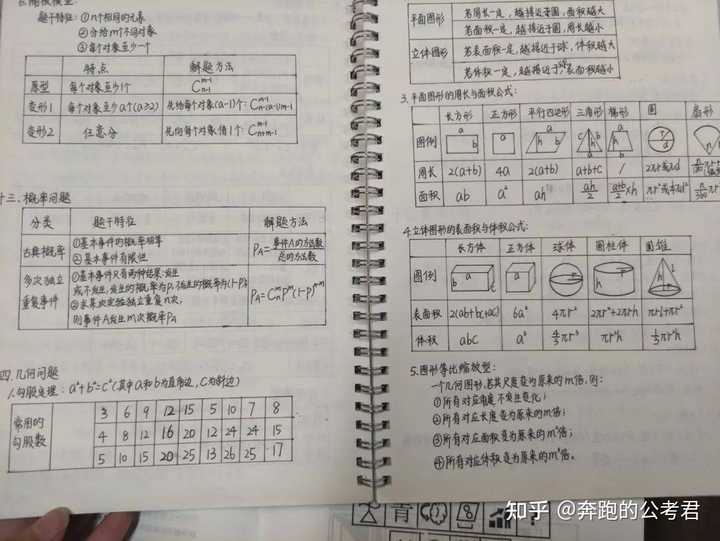 题干特征: ①n个相同的元素
②分给m个不同对象
③每个对象至少一个
特点 解题方法
原型 每个对象至少1个 C_{n-1}^{m-1}
变形1 每个对象至少a个(a≥2) 先给每个对象(a-1)个: C_{n-(a-1)m-1}^{m-1}
变形2 任意分 先向每个对象借1个: C_{n+m-1}^{m-1}
十三.概率问题
分类 题干特征 解题方法
古典概率 ①基本事件的概率相等
②基本事件有限個
P_A=事件A的方法数/总的方法数
多次独立重复事件 ①基本事件只有两种结果:发生
或不发生,发生的概率为P,不发生的概率为(1-P);
②求某次实验独立重复n次,
则事件A发生m次概率P_A
P_A=C_n^m P^m(1-P)^{n-m}
四.几何问题
1.勾股定理: a²+b²=c²(其中a和b为直角边,c为斜边)
常用的勾股数
3 6 9 12 15 5 10 7 8
4 8 12 16 20 12 24 24 15
5 10 15 20 25 13 26 25 17
平面图形 若周长一定,越接近于圆,面积越大
若面积一定,越接近于圆,周长越小
立体图形 若表面积一定,越接近于球,体积越大
若体积一定,越接近于球,表面积越小
3.平面图形的周长与面积公式:
长方形 正方形 平行四边形 三角形 梯形 圆 扇形
图例 a b a a b h c a b h a h b r d
周长 2(a+b) 4a 2(a+b) a+b+c / 2πr或πd
面积 ab a² ah ah/2 (a+b)/2×h
4.立体图形的表面积与体积公式:
长方体 正方体 球体 圆柱体 圆锥
图例 b a c a r h
表面积 2(ab+bc+ac) 6a² 4πr² 2πr²+2πrh
体积 abc a³ 4/3πr³ πr²h 1/3πr²h
5.图形等比缩放型:
一个几何图形,若其尺度变为原来的m倍,则:
①所有对应角度不发生变化;
②所有对应长度变为原来的m倍;
③所有对应面积变为原来的m²倍;
④所有对应体积变为原来的m³倍。
青
?
知乎 @奔跑的公考君